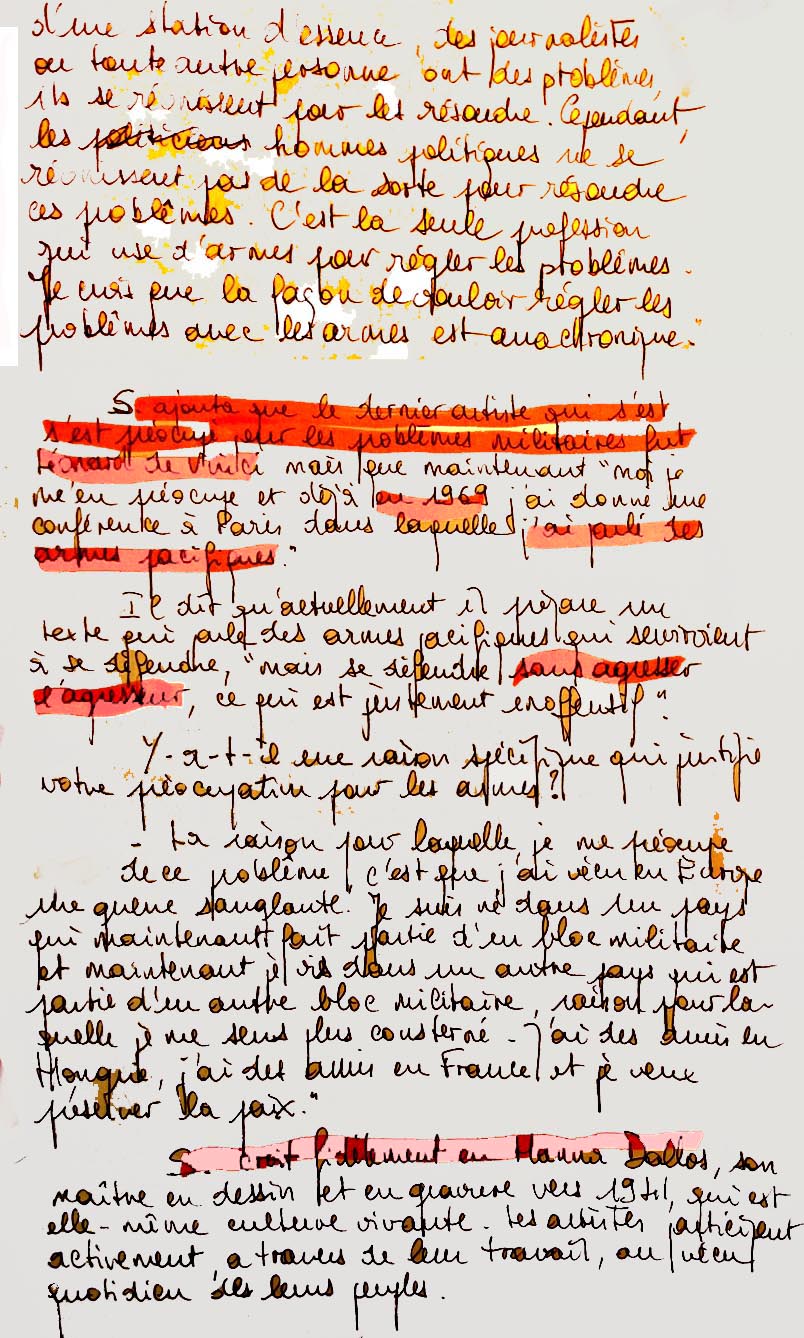 d'une station d'essence, des journalistes
ou toute autre personne ont des problèmes,
ils se réunissent pour les résoudre. Cependant,
les politiciens hommes politiques ne se
réunissent pas de la sorte pour résoudre
ces problêmes. C'est la seule profession
qui use d'armes pour régler les problêmes.
Je crois que la façon de vouloir régler les
problêmes avec les armes est anachronique."
S. ajouta que le dernier artiste qui s'est
s'est préocupé pour les problêmes militaires fut
Léonard de Vinci mais que maintenant "moi je
m'en préocupe et déjà en 1969 j'ai donné une
conférence à Paris dans laquelle j'ai parlé des
armes pacifiques."
Il dit qu'actuellement il prépare un
texte qui parle des armes pacifiques qui serviroient
à se défendre, "mais se défendre sans agresser
l'agresseur, ce qui est justement inoffensif".
Y-a-t-il une raison spécifique qui justifie
votre préocupation pour les armes?
- La raison pour laquelle je me préocupe
de ce problême c'est que j'ai vécu en Europe
une guerre sanglante. Je suis né dans un pays
qui maintenant fait partie d'un bloc militaire
et maintenant je vis dans un autre pays qui est
partie d'un autre bloc militaire, raison pour la-
quelle je me sens plus consterné. J'ai des amis en
Hongrie, j'ai des amis en France et je veux
préserver la paix."
S. croit fidèlement en Hanna Dallos, son
maître en dessin et en gravure vers 1941, qui est
elle-même culture vivante. Les artistes participent
activement, a travers de leur travail, au vécu
quotidien des leurs peuples.